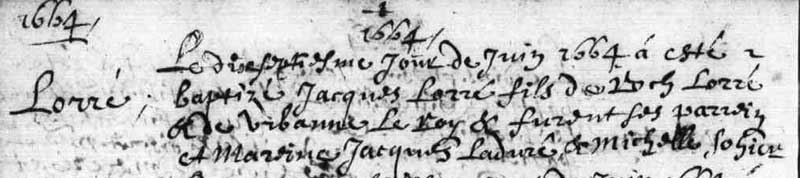 1664
1664
Le dixseptiesme Jour de Juin 1664 á esté
Lorré, baptizé Jacques Lorré fils de Roch Lorré
& de Vrbanne Le Roy & furent ses parrein
et Mareine Jacques Laduré, & Michelle Sohier